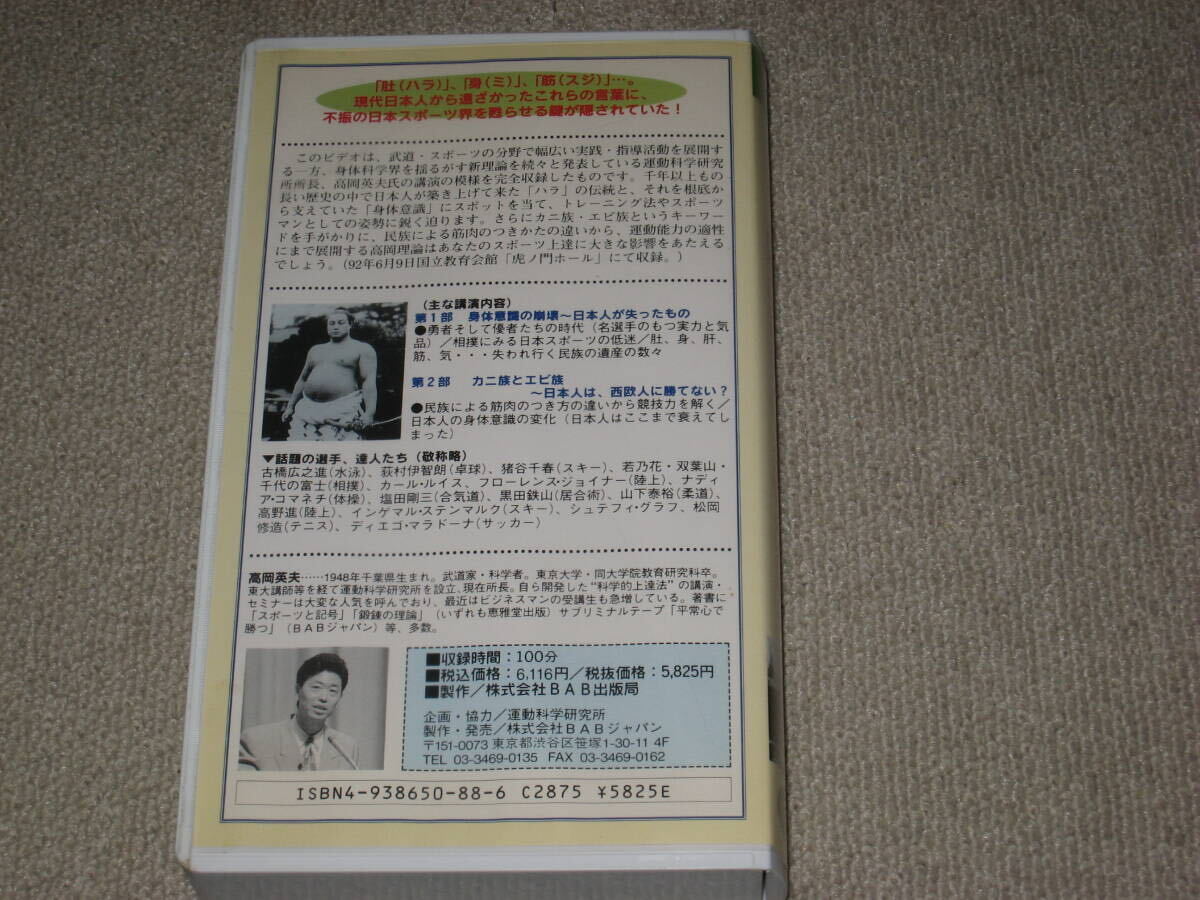 「肚(ハラ)」、「身(ミ)」、「筋(スジ)」…。
現代日本人から遠ざかったこれらの言葉に、
不振の日本スポーツ界を甦らせる鍵が隠されていた！
このビデオは、武道・スポーツの分野で幅広い実践・指導活動を展開す
る一方、身体科学界を揺るがす新理論を続々と発表している運動科学研究
所所長、高岡英夫氏の講演の模様を完全収録したものです。千年以上もの
長い歴史の中で日本人が築き上げて来た「ハラ」の伝統と、それを根底か
ら支えていた「身体意識」にスポットを当て、トレーニング法やスポーツ
マンとしての姿勢に鋭く迫ります。さらにカニ族・エビ族というキーワー
ドを手がかりに、民族による筋肉のつきかたの違いから、運動能力の適性
にまで展開する高岡理論はあなたのスポーツ上達に大きな影響をあたえる
でしょう。(92年6月9日国立教育会館「虎ノ門ホール」にて収録。)
(主な講演内容)
第1部 身体意識の崩壊～日本人が失ったもの
●勇者そして優者たちの時代(名選手のもつ実力と気
品)／相撲にみる日本スポーツの低迷／肚、身、肝、
筋、気・・・失われ行く民族の遺産の数々
第2部 カニ族とエビ族
～日本人は、西欧人に勝てない？
●民族による筋肉のつき方の違いから競技力を解く／
日本人の身体意識の変化(日本人はここまで衰えてし
まった)
▼話題の選手、達人たち(敬称略)
古橋広之進(水泳)、荻村伊智朗(卓球)、猪谷千春(スキー)、若乃花・双葉山・
千代の富士(相撲)、カール・ルイス、フローレンス・ジョイナー(陸上)、ナディ
ア・コマネチ(体操)、塩田剛三(合気道)、黒田鉄山(居合術)、山下泰裕(柔道)、
高野進(陸上)、インゲマル・ステンマルク(スキー)、シュテフィ・グラフ、松岡
修造(テニス)、ディエゴ・マラドーナ(サッカー)
高岡英夫……1948年千葉県生まれ。武道家・科学者。東京大学・同大学院教育研究科卒。
東大講師等を経て運動科学研究所を設立、現在所長。自ら開発した“科学的上達法”の講演・
セミナーは大変な人気を呼んでおり、最近はビジネスマンの受講生も急増している。著書に
「スポーツと記号」「鍛錬の理論」(いずれも恵雅堂出版)サブリミナルテープ「平常心で
勝つ」(BABジャパン)等、多数。
■収録時間：100分
■税込価格：6,116円／税抜価格：5,825円
■製作／株式会社BAB出版局
企画・協力／運動科学研究所
製作・発売／株式会社BABジャパン
〒151-0073 東京都渋谷区笹塚1-30-11 4F
TEL 03-3469-0135 FAX 03-3469-0162
ISBN4-938650-88-6 C2875 ¥5825E